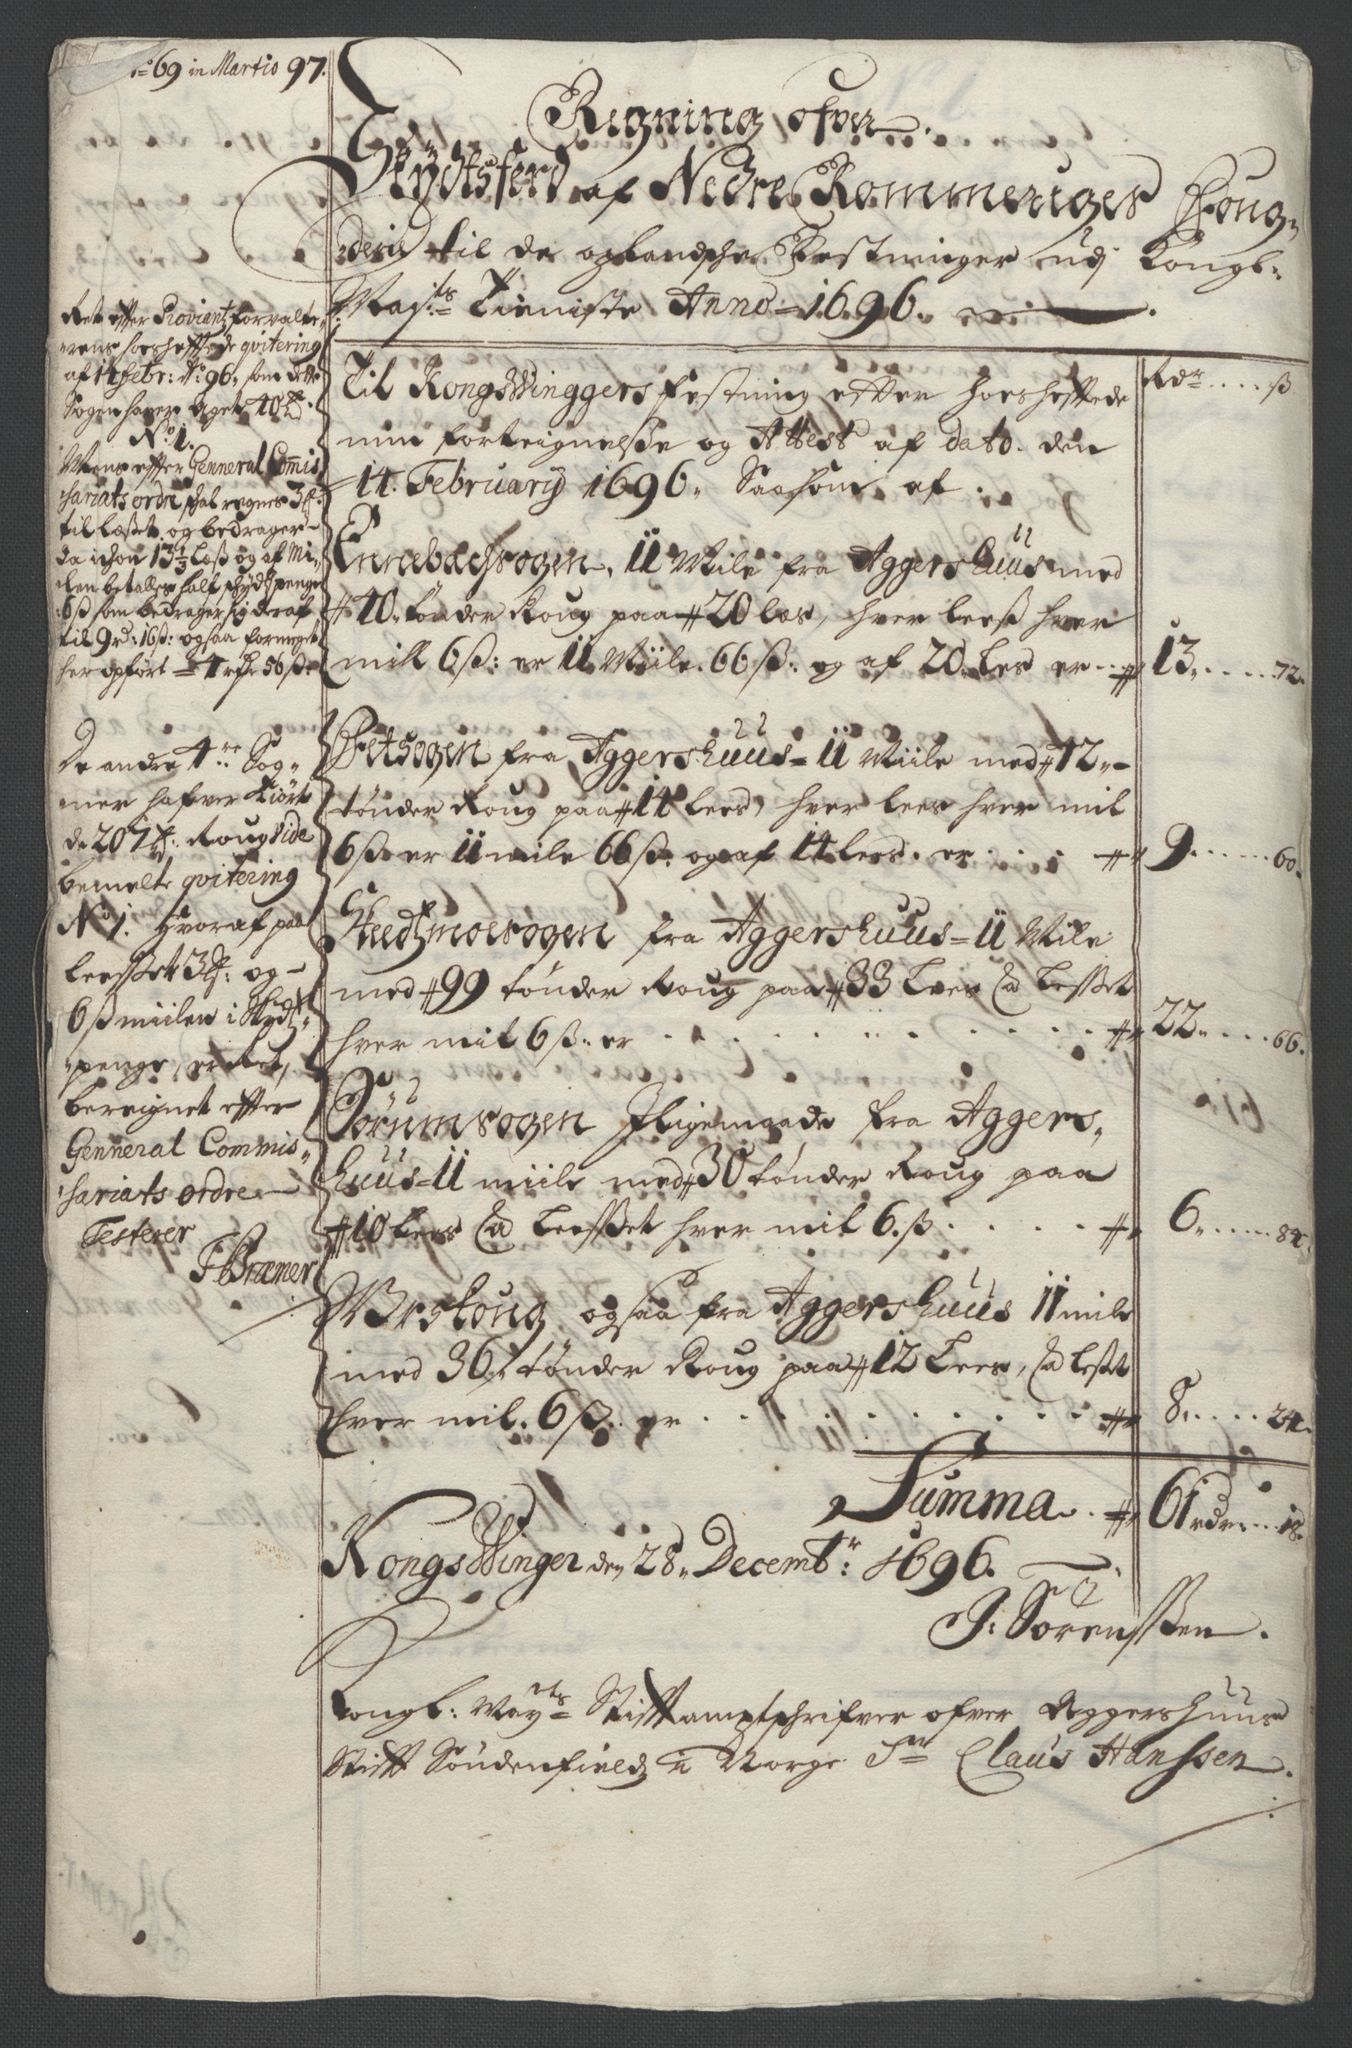 69 in Martio 97.
Regning ofver
Skydtsferd af Nedre Rommeriges Foug-
derie til de oplandsche Festninger udj Kongl:
Mayts: Tieniste Anno 1696.
Rdr .... ß
Til KongsWinggers festning efter hoeshefftede
min forteignelse og Attest af dato den
14. February 1696. Saasom af:
Ennebachsogen, 11 Mile fra Aggershuus med
40 tønder Roug paa 20 læs, hver leeß hver
mill 6 ß: er 11 Miile 66 ß: og af 20 Les er 13 .... 72.
Fetsogen fra Aggershuus 11 Miile med 42
tønder Roug paa 14 lees, hver lees hver mil
6 ß er 11 mile 66 ß: og af 14 lees er 9 .... 60.
Skeedtzmoesogen fra Aggershuus 11 Mile
med 99 tønder Roug paa 33 Lees a Lesset
hver mil 6 ß er 22 .... 66.
Sørumsogen Iligemaade fra Aggers-
huus 11 miile med 30 tønder Roug paa
10 lees a Leesset hver mil 6 ß 6 .... 84.
Urskoug ogsaa fra Aggershuus 11 mile
med 36 tønder Roug paa 12 Lees, a leset
hver mil 6 ß er 8 .... 24.
Summa 61 rdr .... 18.
KongsWinger den 28 Decembr: 1696.
J: Sørenssen.
Kongl: Mayts Stifftamptschrifver ofver Aggershuus
Stifft Søndenfields i Norge Sr Claus Hanssen.
Ret efter Proviantforvalte-
rens hoeshefftede qvitering
af 14 febr: Ao 96, som dette
Sogen haver
No 1.
Mens efter General Commis
sariats ordre schal regnes 3
til læsset, og bedrager
da ichon 13 1/3 læß og af Mi-
len betalles half schydtzpenge
6 ß som bedrager sig deraf
til 9 rd: 16 ß: og saa formeget
her opført 4 rdr 56 ß
De andre 4re Sog-
ner hafver kiørt
de 207 Roug vide
bemelte qvitering
No 1. Hvoraf paa
leesset 3 og
6 ß miilen i Skydtz-
penge, er Ret,
beregnet efter
General Commis-
sariats ordre
Testerer
F Bræner